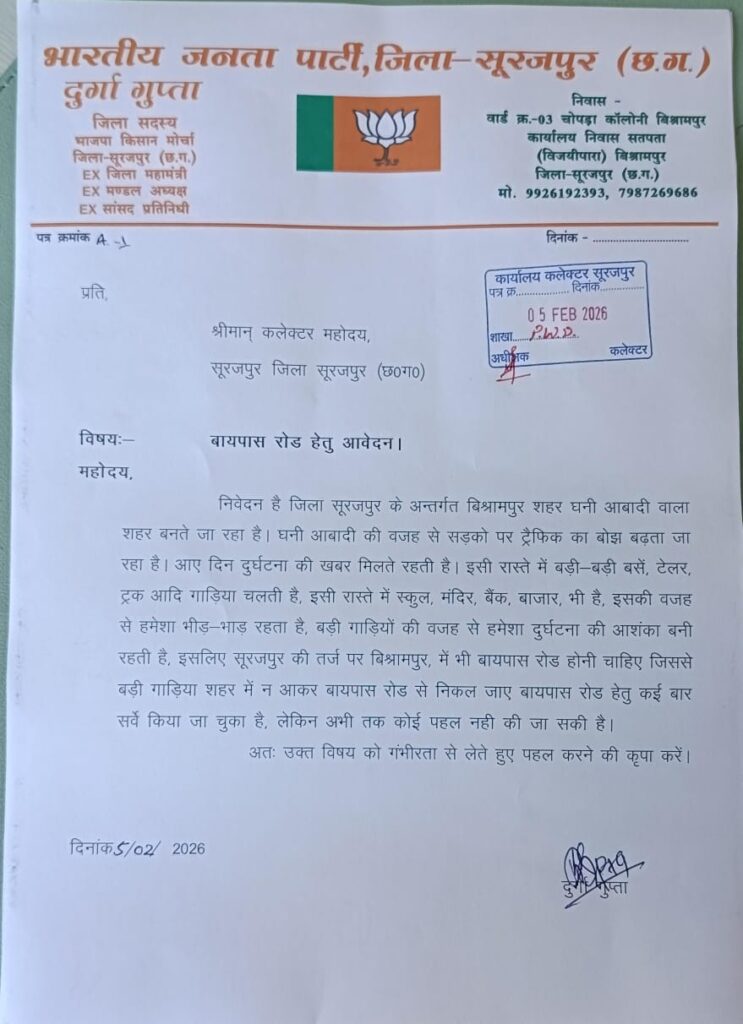 भारतीय जनता पार्टी, जिला–सूरजपुर (छ.ग.)
दुर्गा गुप्ता
जिला सदस्य
भाजपा किसान मोर्चा
जिला-सूरजपुर (छ.ग.)
EX जिला महामंत्री
EX मण्डल अध्यक्ष
EX सांसद प्रतिनिधी
निवास -
वार्ड क्र.-03 चोपड़ा कॉलोनी बिश्रामपुर
कार्यालय निवास सतपता
(विजयीपारा) बिश्रामपुर
जिला-सूरजपुर (छ.ग.)
मो. 9926192393, 7987269686
पत्र क्रमांक A -1
दिनांक - ..............................
कार्यालय कलेक्टर सूरजपुर
पत्र क्र.................. दिनांक..............
05 FEB 2026
शाखा...... P.W.D.
अधीक्षक कलेक्टर
प्रति,
श्रीमान् कलेक्टर महोदय,
सूरजपुर जिला सूरजपुर (छ0ग0)
विषयः– बायपास रोड हेतु आवेदन।
महोदय,
निवेदन है जिला सूरजपुर के अन्तर्गत बिश्रामपुर शहर घनी आबादी वाला
शहर बनते जा रहा है। घनी आबादी की वजह से सड़को पर ट्रैफिक का बोझ बढ़ता जा
रहा है। आए दिन दुर्घटना की खबर मिलते रहती है। इसी रास्ते में बड़ी–बड़ी बसें, टेलर,
ट्रक आदि गाड़िया चलती है, इसी रास्ते में स्कुल, मंदिर, बैंक, बाजार, भी है, इसकी वजह
से हमेशा भीड़–भाड़ रहता है, बड़ी गाड़ियों की वजह से हमेशा दुर्घटना की आशंका बनी
रहती है, इसलिए सूरजपुर की तर्ज पर बिश्रामपुर, में भी बायपास रोड होनी चाहिए जिससे
बड़ी गाड़िया शहर में न आकर बायपास रोड से निकल जाए बायपास रोड हेतु कई बार
सर्वे किया जा चुका है, लेकिन अभी तक कोई पहल नही की जा सकी है।
अतः उक्त विषय को गंभीरता से लेते हुए पहल करने की कृपा करें।
दिनांक 5/02/ 2026
दुर्गा गुप्ता